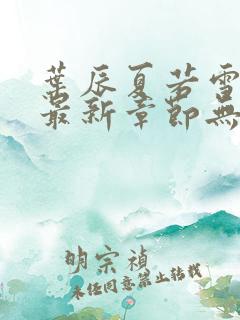 葉辰夏若雪
最新章節無
明宗禎
未经同意禁止转载